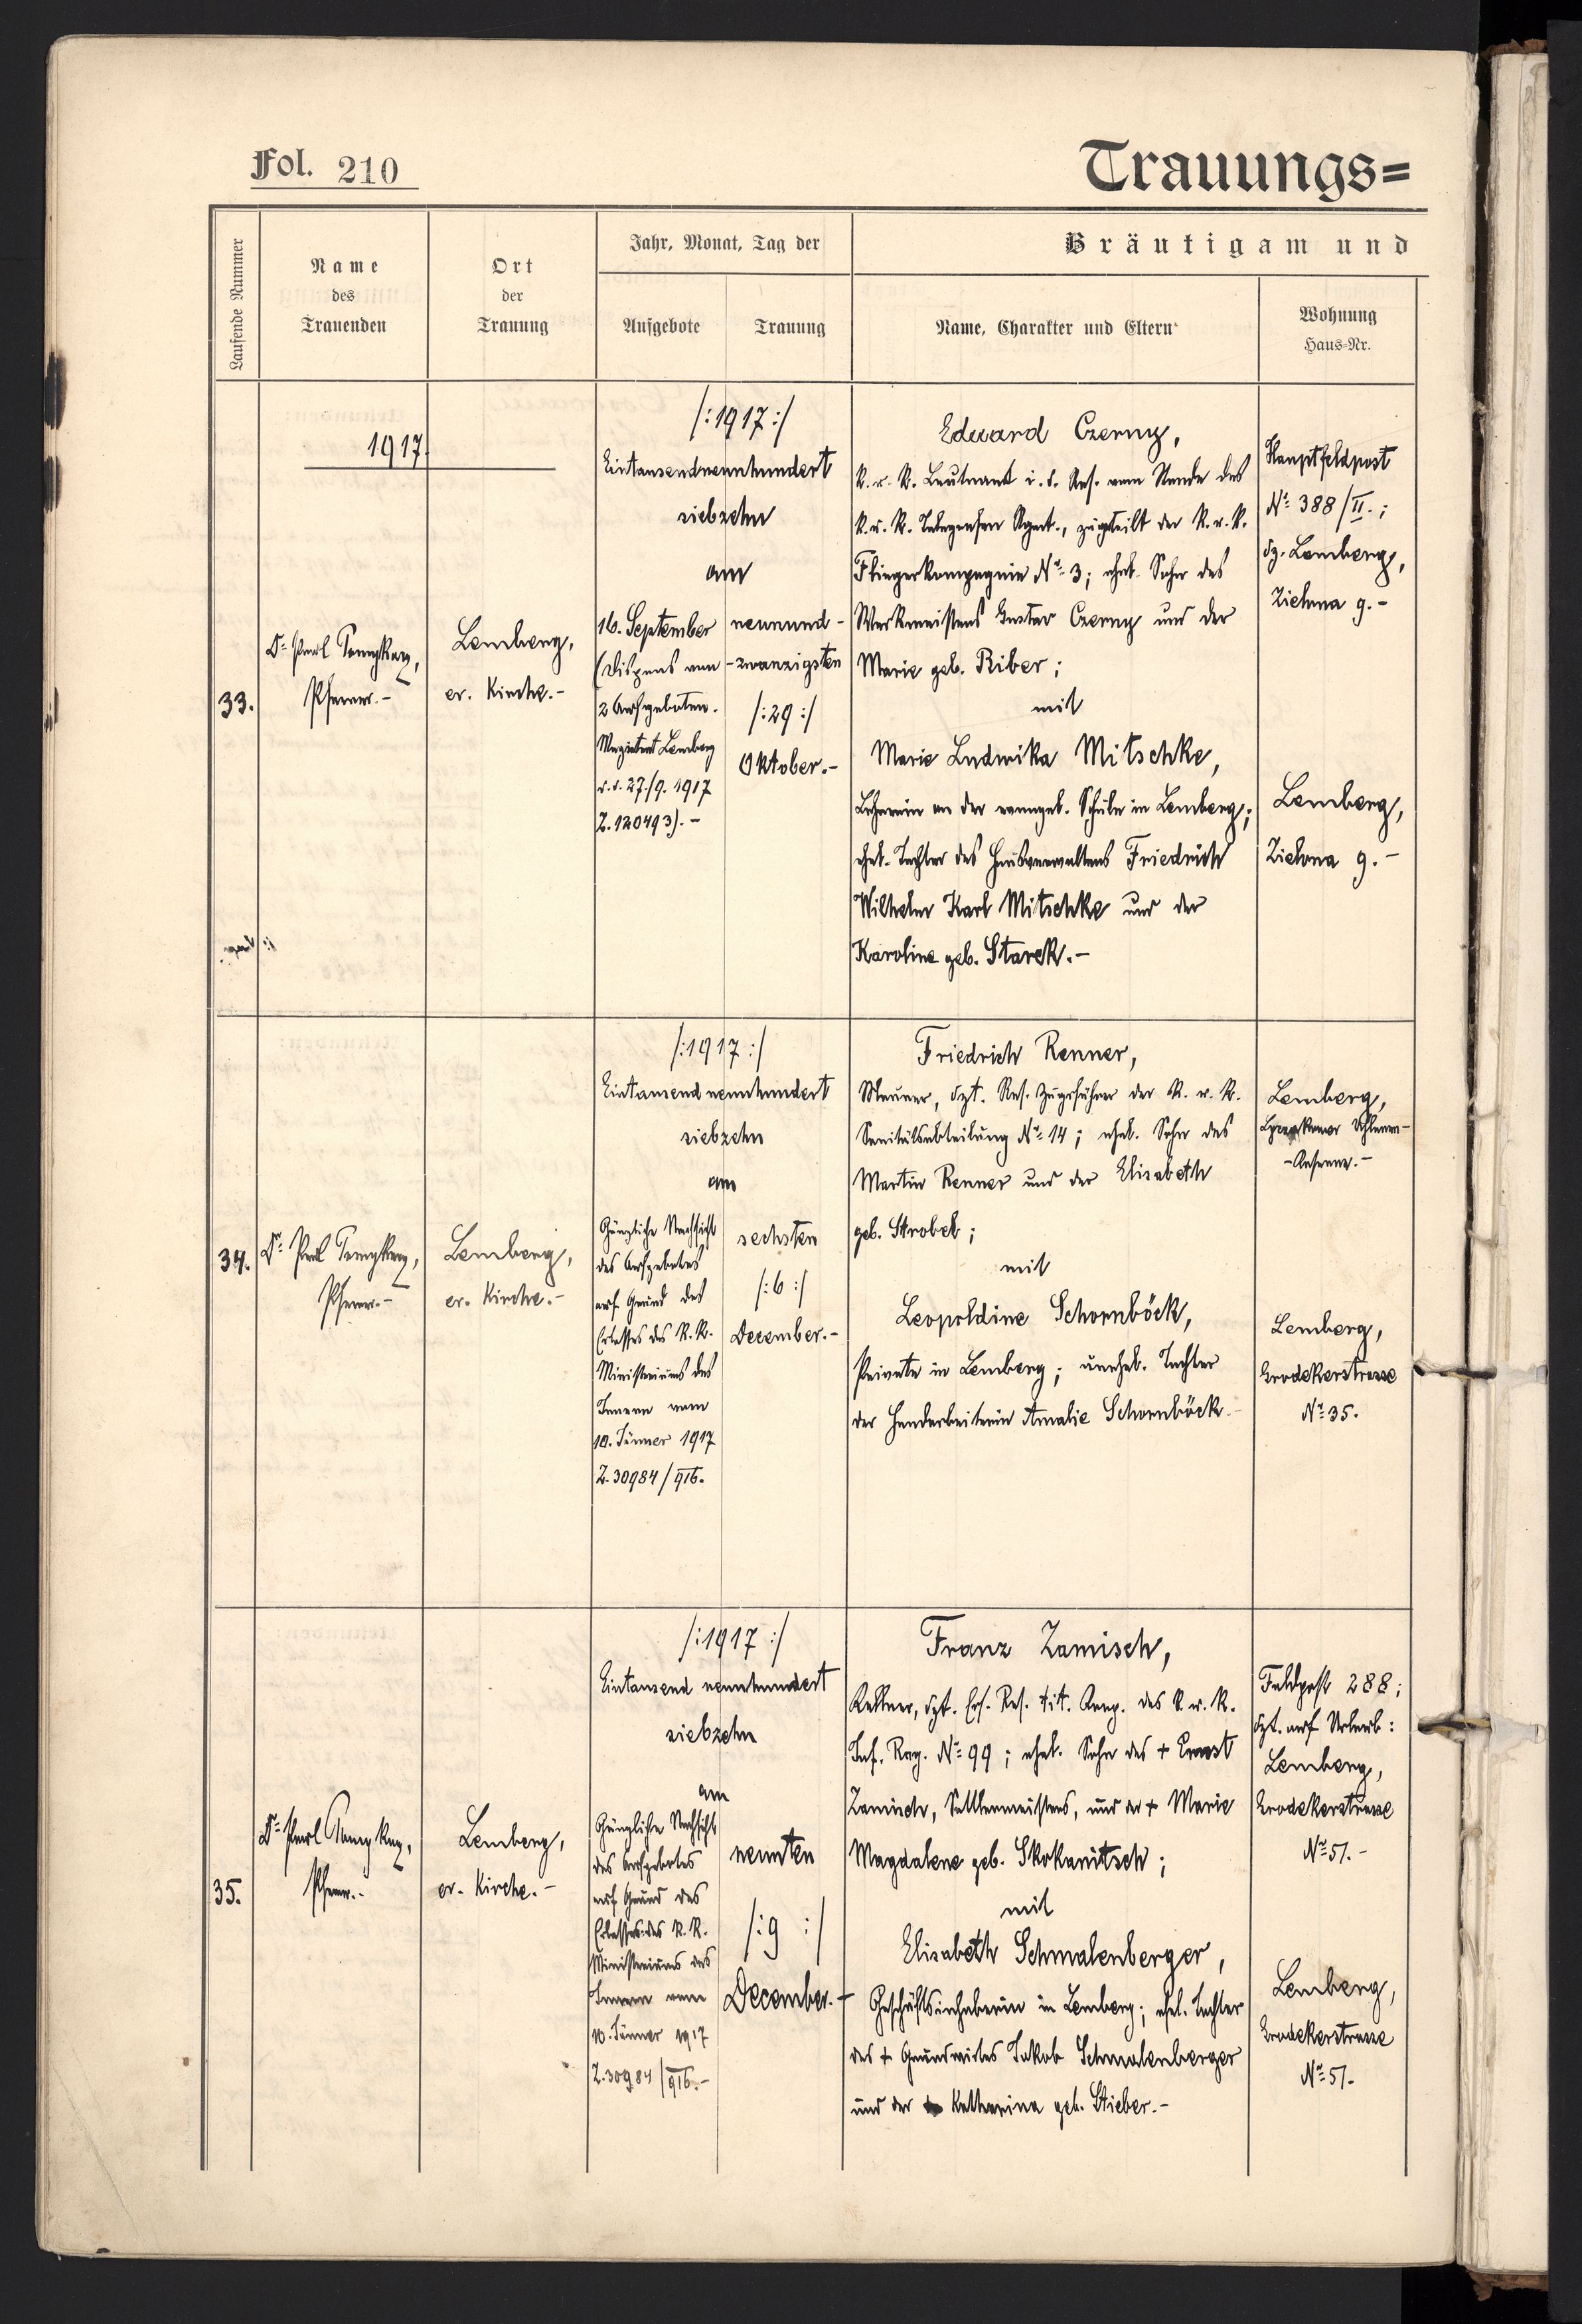 Fol. 210
Trauungs=
Laufende Nummer
Name
des
Trauenden
Ort
der
Trauung
Jahr, Monat, Tag der
Aufgebote
Trauung
Bräutigam und
Name, Charakter und Eltern
Wohnung
Haus=Nr.
1917.
33.
Dr. Paul
Pfarrer.-
Lemberg,
ev. Kirche.-
/:1917:/
Eintausendneunhundert
siebzehn
am
16. September
(Dispens vom
2 Aufgeboten.
Magistrat Lemberg
v. d. 27./9. 1917
Z. 120493).-
neunund-
-zwanzigsten
/:29:/
Oktober.-
Eduard Czerny,
K. u. K. Leutnant i. d. Res. vom Stande des
K. u. K. Telegrafen Regmt., zugeteilt der K. u. K.
Fliegerkompagnie No 3; ehel. Sohn des
Werkmeisters Gustav Czerny und der
Marie geb. Riber;
mit
Marie Ludwika Mitschke,
Lehrerin an der evangel. Schule in Lemberg;
ehel. Tochter des Hausverwalters Friedrich
Wilhelm Karl Mitschke und der
Karoline geb. Starek.-
Hauptfeldpost
No 388/II.;
dz. Lemberg,
Zielona 9.-
Lemberg,
Zielona 9.-
34.
Dr. Paul
Pfarrer.-
Lemberg,
ev. Kirche.-
/:1917:/
Eintausend neunhundert
siebzehn
am
Gänzliche Nachsicht
des Aufgebotes
auf Grund des
Erlasses des K. K.
Ministeriums des
Innern vom
10. Jänner 1917
Z. 30984/916.
sechsten
/:6:/
December.-
Friedrich Renner,
Maurer, dzt. Res. Zugsführer der K. u. K.
Sanitätsabteilung No 14; ehel. Sohn des
Martin Renner und der Elisabeth
geb. Strobel;
mit
Leopoldine Schornböck,
Private in Lemberg; unehel. Tochter
der Handarbeiterin Amalie Schornböck.-
Lemberg,
Lemberg,
Grodekerstrasse
No 35.
35.
Dr. Paul
Pfarrer.-
Lemberg,
ev. Kirche.-
/:1917:/
Eintausend neunhundert
siebzehn
am
Gänzliche Nachsicht
des Aufgebotes
auf Grund des
Erlasses des K. K.
Ministeriums des
Innern vom
10. Jänner 1917
Z. 30984/916.-
neunten
/:9:/
December.-
Franz Zamisch,
Kellner, dzt. Ers. Res. tit. Korp. des K. u. K.
Inf. Reg. No 99; ehel. Sohn des + Ernst
Zamisch, Sattlermeisters, und der + Marie
Magdalene geb. Skokanitsch;
mit
Elisabeth Schmalenberger,
Geschäftsinhaberin in Lemberg; ehel. Tochter
des + Grundwirtes Jakob Schmalenberger
und der Katharina geb. Stieber.-
Feldpost 288;
dzt. auf Urlaub:
Lemberg,
Grodekerstrasse
No 51.-
Lemberg,
Grodekerstrasse
No 51.